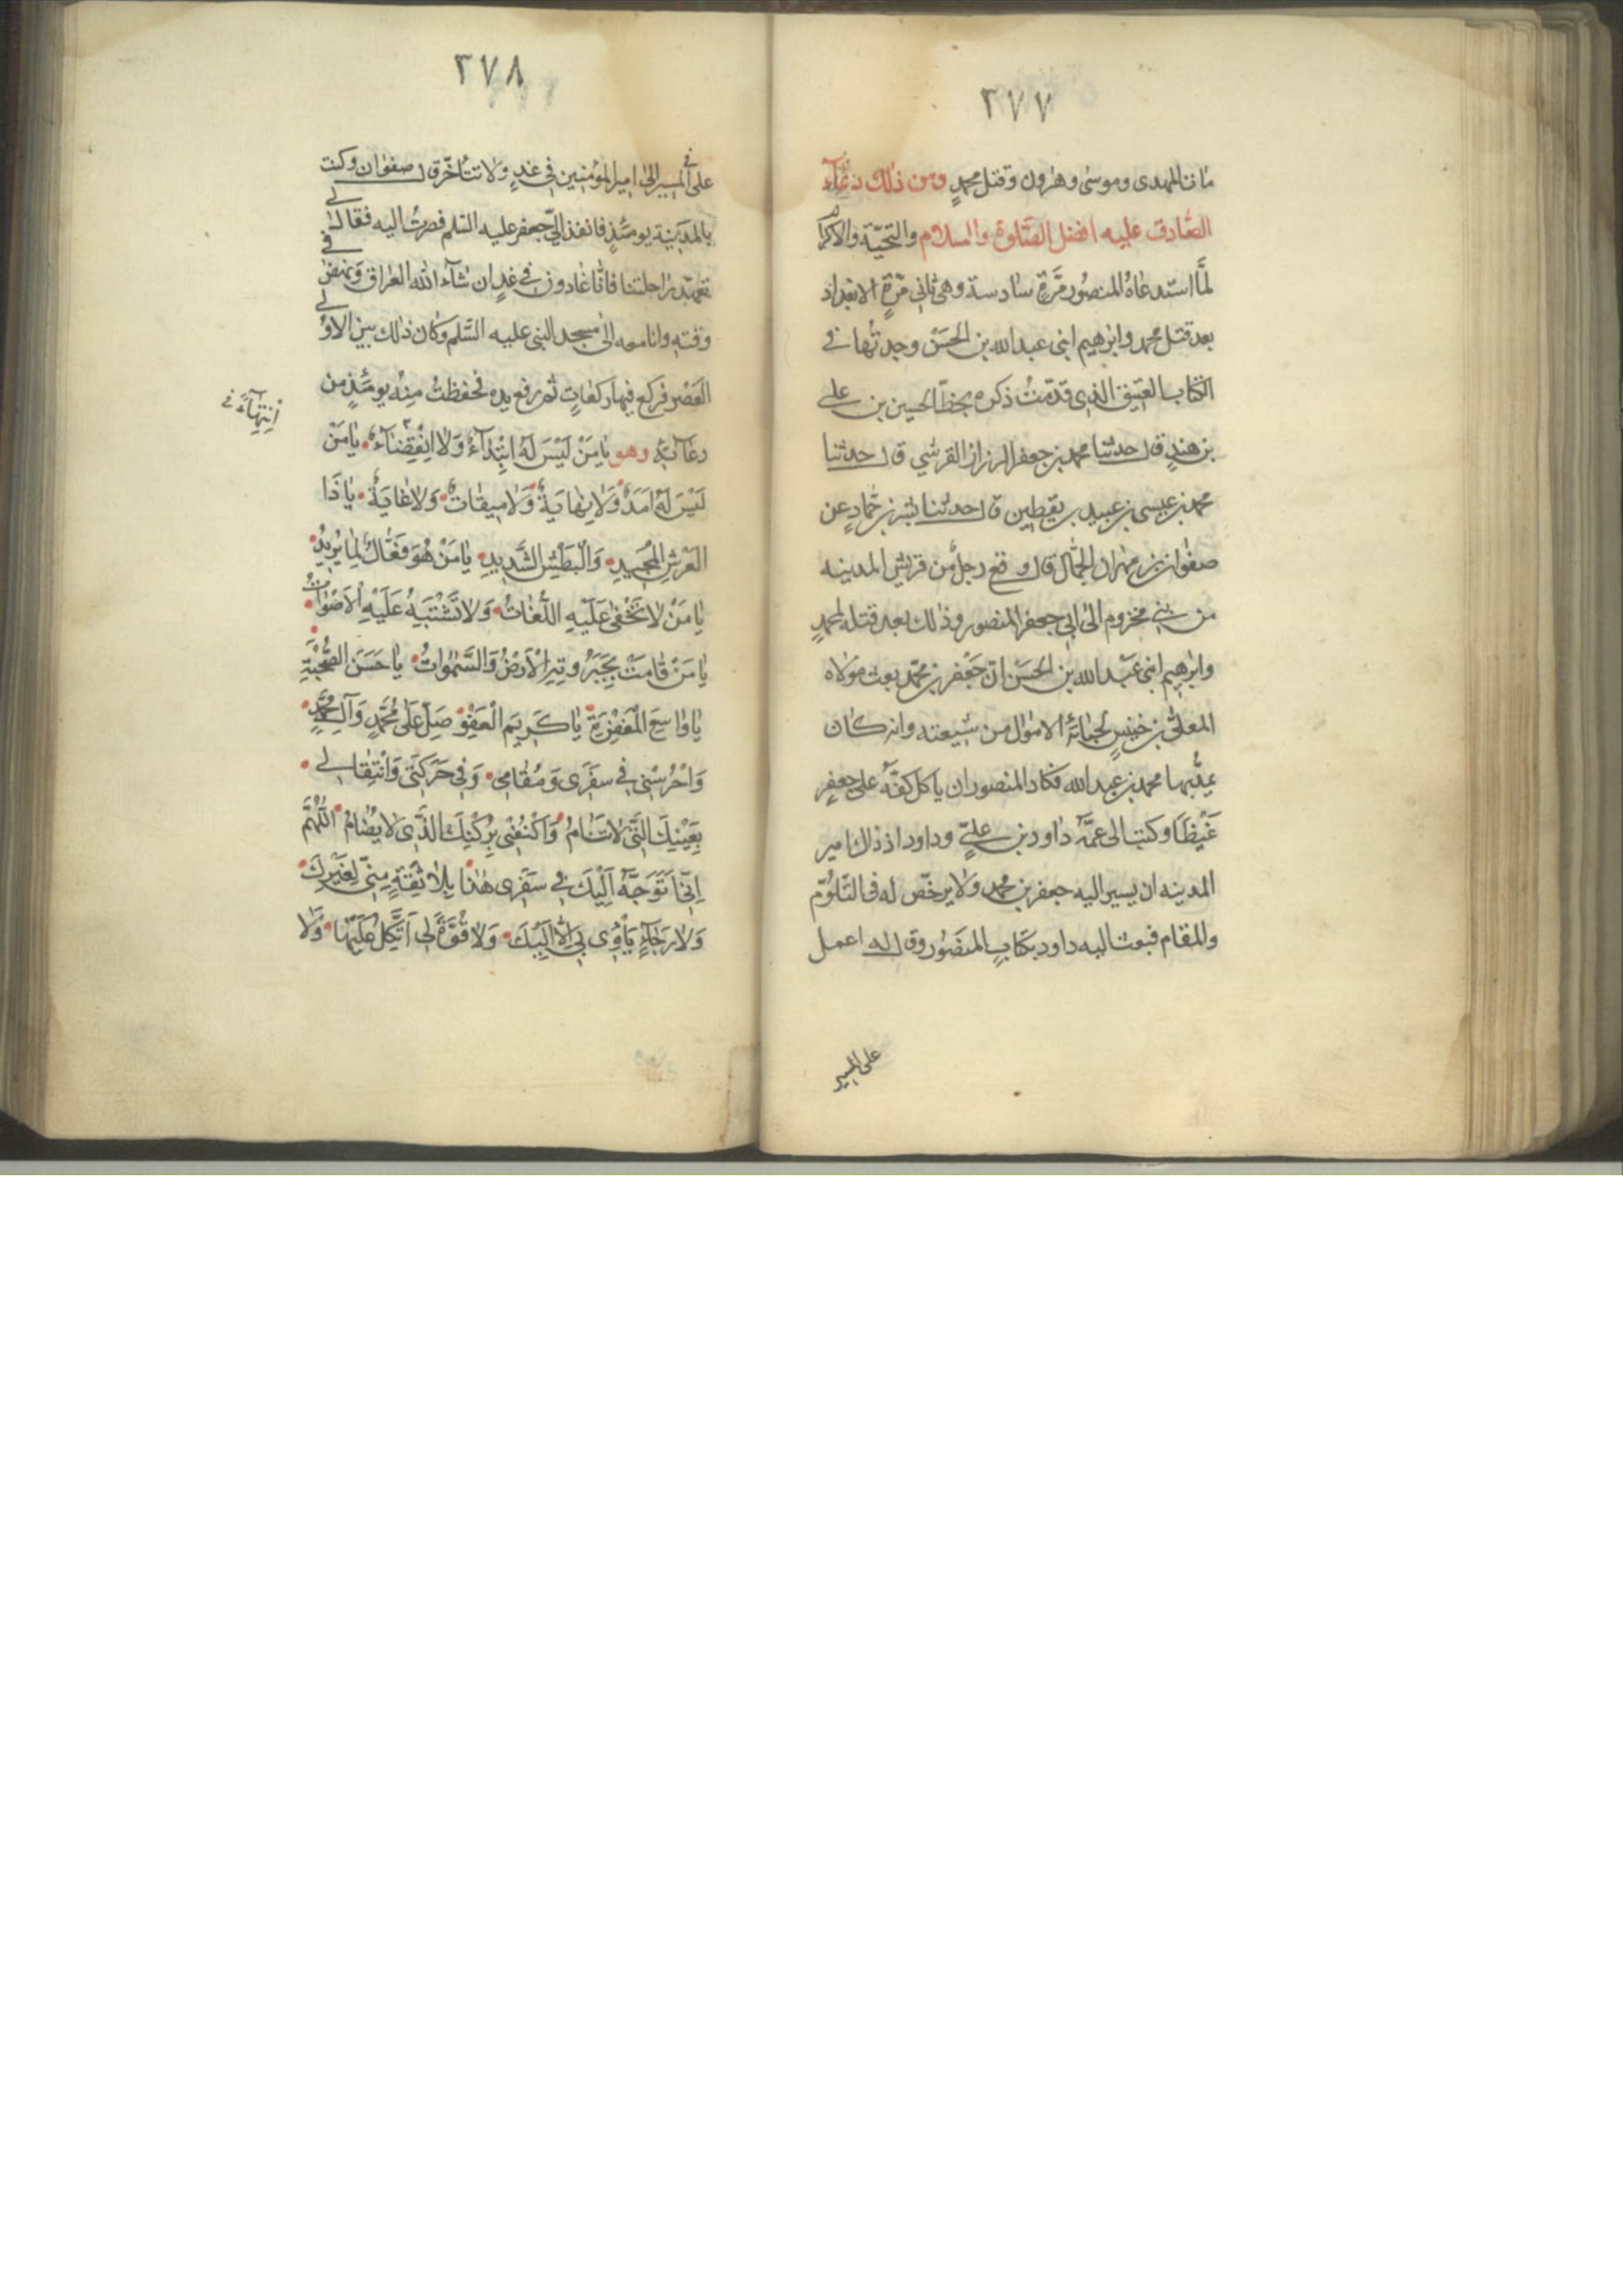 ٣٧٧
مات المهدى وموسى وهرون وقتل محمدٍ ومن ذلك دعآء
الصّادق عليه افضل الصّلوة والسلام والتحيّة والاكرام
لمّا استدعاهُ المنصُور مرّةً سادسة وهى ثانى مرّةٍ الى بغداد
بعد قتل محمد وابرهيم ابنى عبدالله بن الحسَنْ وجدتُها فى
الكتاب العتيق الذى قدّمتُ ذكره بخطّ الحسين بن على
بن هندٍ قال حدثنا محمد بن جعفر الرزاز القرشي قال حدثنا
محمد بن عيسى بن عبيد بن يقطين قال حدثنا بشر بن حمّادٍ عن
صفوان بن مهران الجمّال قال رفع رجلٌ من قريش المدينه
من بنى مخزوم الى ابى جعفر المنصور وذلك بعد قتله لمحمدٍ
وابرهيم ابنى عبْدالله بن الحسَن انّ جَعْفر بن محمّد بعث مولاه
المعلّى بن خنيسٍ لجبايَة الاموال من شيعته وانه كان
يمدّ بها محمد بن عبدالله فكاد المنصور ان ياكل كفّه على جعفرٍ
غَيْظًا وكتب الى عمّه داود بن علىٍّ وداود اذ ذاك امير
المدينه ان يسير اليه جعفر بن محمد ولا يرخّص له فى التلوّم
والمقام فبعث اليه داود بكتابِ المنصُور وقال له اعمل
على المسير
٣٧٨
على المسير الى امير المؤمنين فى غدٍ ولا تتأخّر قال صفوان وكنت
بالمدينة يومئذٍ فانفذ الىّ جعفر عليه السّلم فصرتُ اليه فقال لى
تعهّد راحلتنا فانّا غادون فى غدٍ ان شآء الله العراق ونهض فى
وقته وانا معه الى مسجد النبى عليه السّلم وكان ذلك بين الاولى
العَصْر فركع فيها ركعاتٍ ثم رفع يده فحفظتُ منه يومئذٍ من
انتهآءٌ
دعآئه وهو يامَنْ لَيْسَ لَهُ اِبْتِدآءٌ وَلا اِنْقِضآءٌ يا مَنْ
لَيْسَ لَهُ اَمَدٌ وَلا نِهايَةٌ وَلا ميقاتٌ وَلا غايَةٌ يا ذَا
العَرْشِ الْمَجيدِ وَالْبَطْشِ الشَّديدِ يا مَنْ هُوَ فَعّالٌ لِما يُريدُ
يا مَنْ لا تَخْفى عَلَيْهِ اللُّغاتُ وَلا تَشْتَبِهُ عَلَيْهِ الْاَصْواتُ
يا مَنْ قامَتْ بِجَبَرُوتِهِ الْاَرْضُ وَالسَّمواتُ يا حَسَنَ الصُّحْبَةِ
يا واسِعَ الْمَغْفِرَةِ يا كَريمَ الْعَفْوِ صَلِّ عَلى مُحَمَّدٍ وَآلِ مُحَمَّدٍ
وَاحْرُسْنى فى سَفَرى وَمُقامى وَفى حَرَكَتى وَانْتِقالى
بِعَيْنِكَ الَّتى لا تَنامُ وَاكْنُفْنى بِرُكْنِكَ الَّذى لا يُضامُ اَللّهُمَّ
اِنّى اَتَوَجَّهُ اِلَيْكَ فى سَفَرى هذا بِلا ثِقَةٍ مِنّى لِغَيْرِكَ
وَلا رَجآءٍ يَأْوى بى اِلّا اِلَيْكَ وَلا قُوَّةَ لى اَتَّكِلُ عَلَيْها وَلا